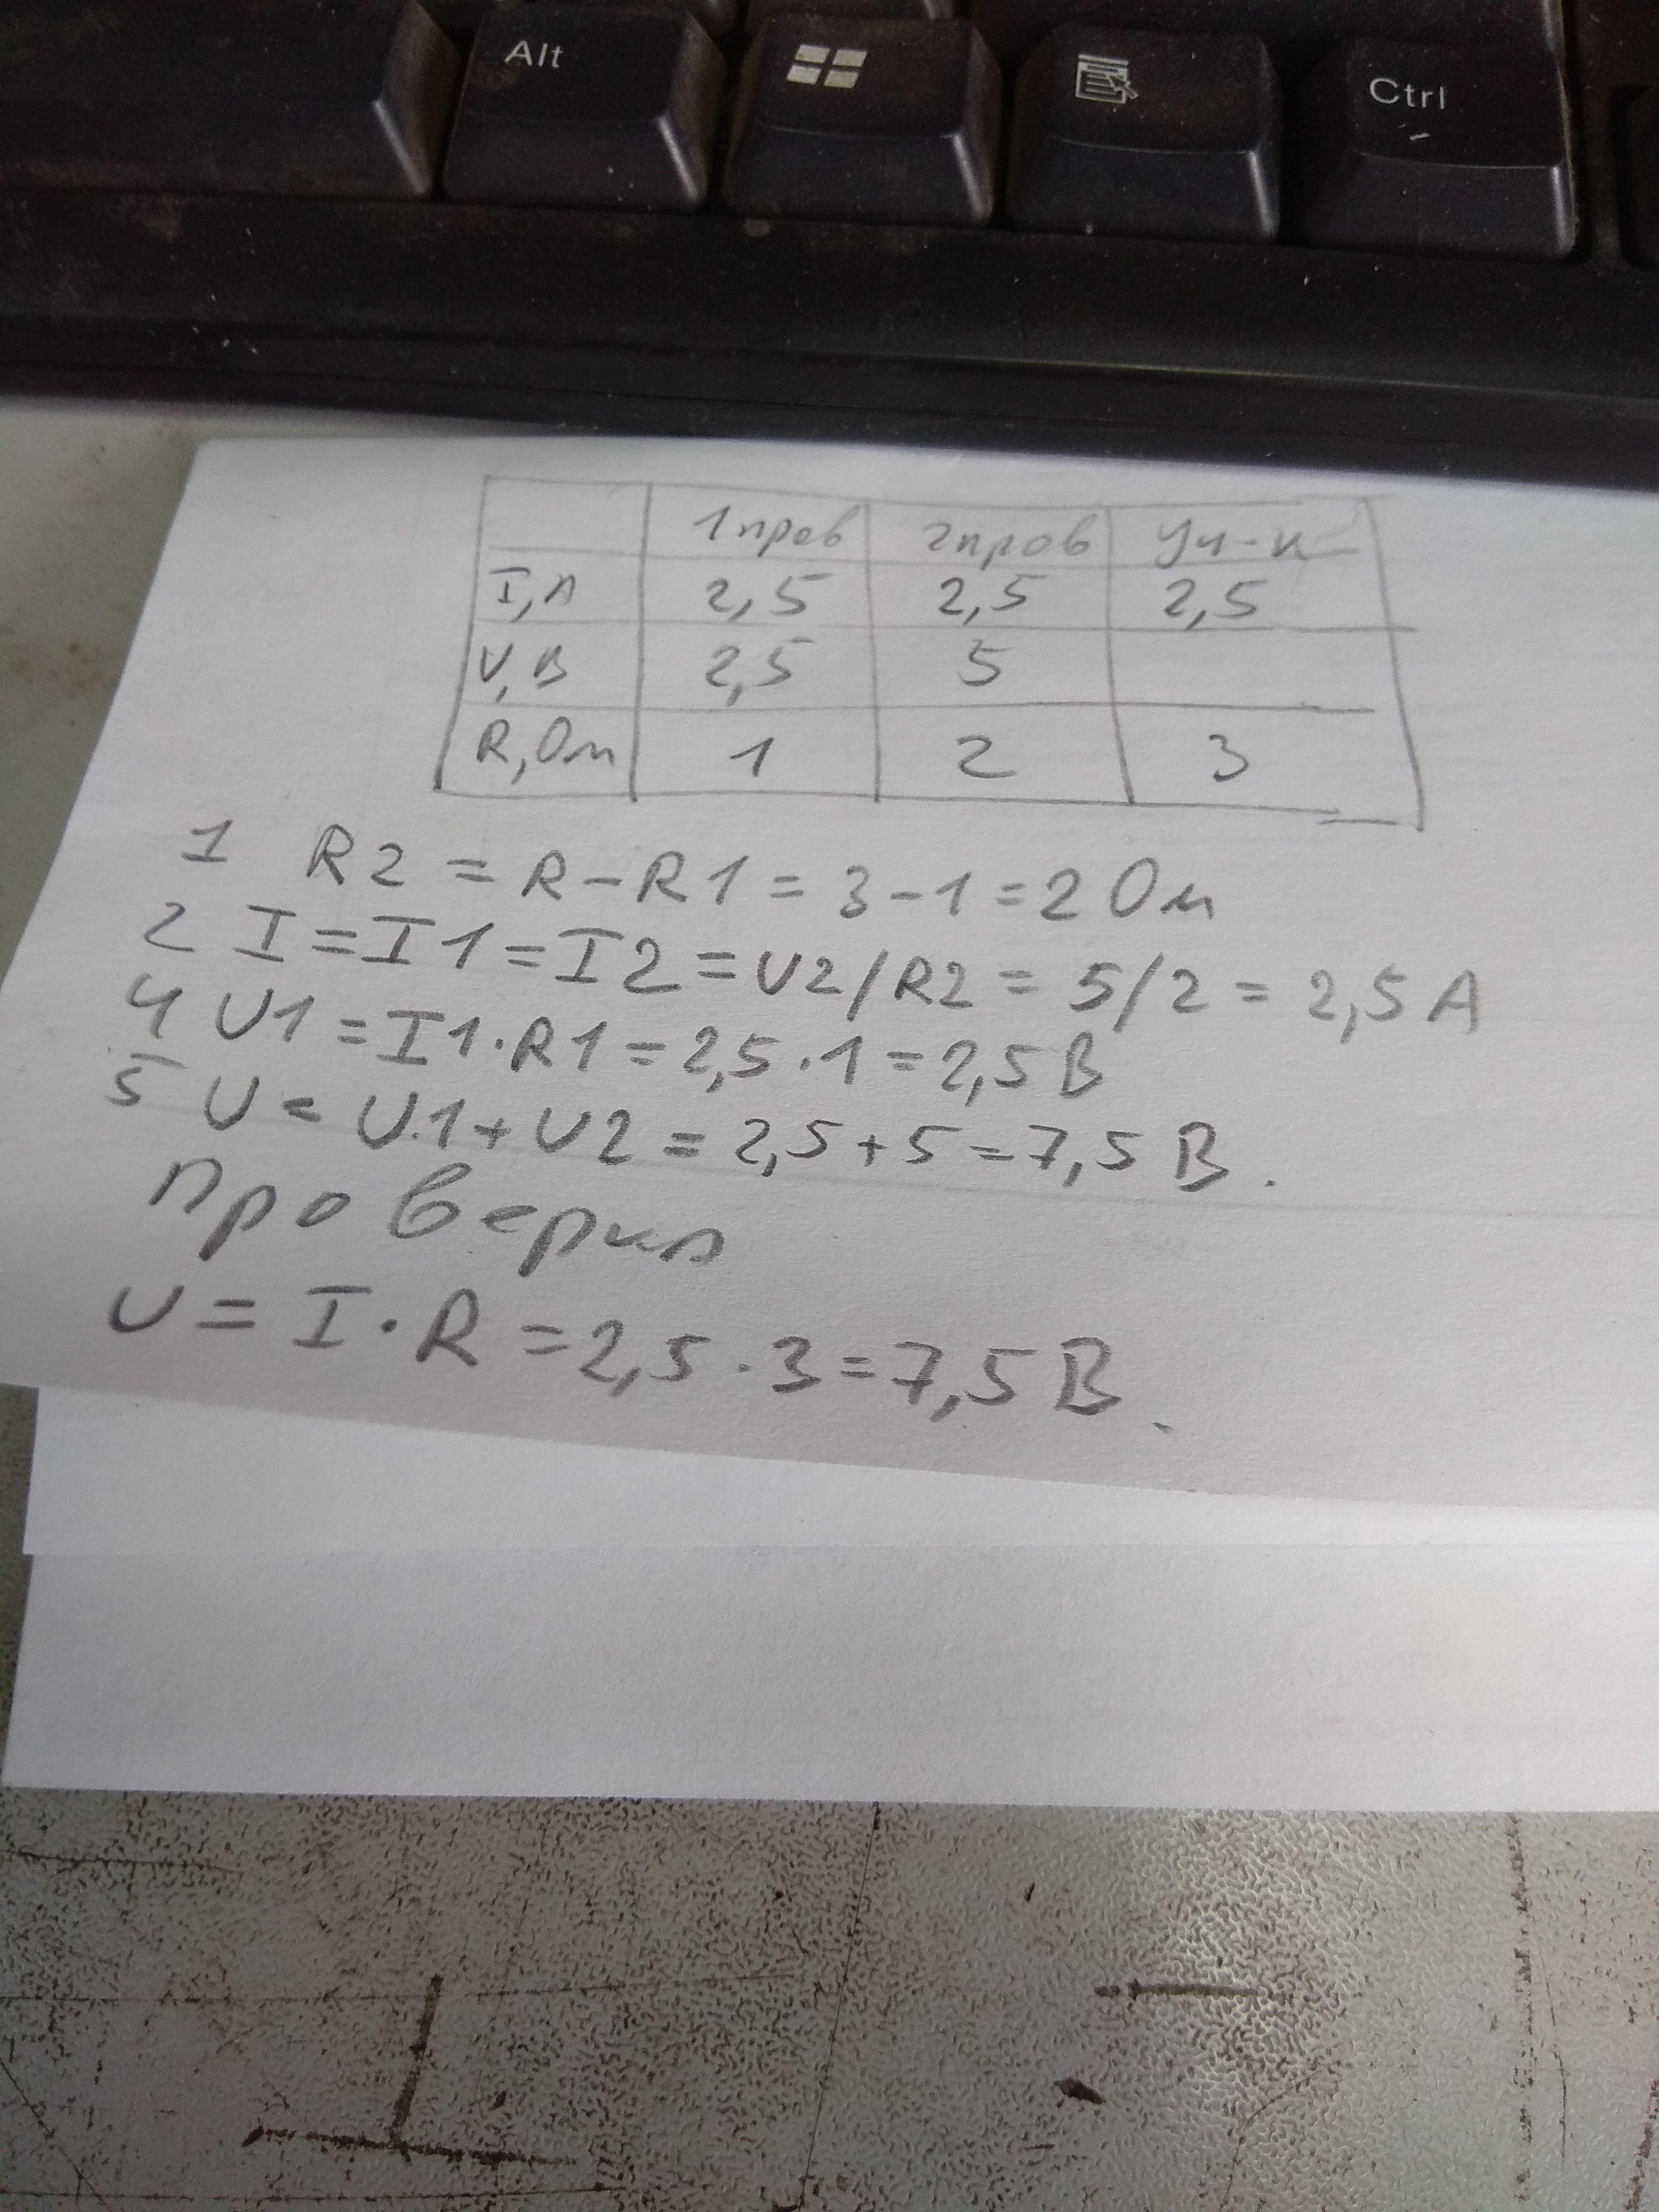 Alt Ctrl
1 пров 2 пров Уч-к
I, А 2,5 2,5 2,5
U, В 2,5 5
R, Ом 1 2 3
1 R2 = R - R1 = 3 - 1 = 2 Ом
2 I = I1 = I2 = U2/R2 = 5/2 = 2,5 А
4 U1 = I1 · R1 = 2,5 · 1 = 2,5 В
5 U = U1 + U2 = 2,5 + 5 = 7,5 В.
проверил
U = I · R = 2,5 · 3 = 7,5 В.